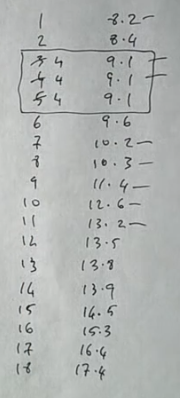 1 8.2 –
2 8.4
3 4 9.1 –
4 4 9.1 –
5 4 9.1
6 9.6
7 10.2 –
8 10.3 –
9 11.4 –
10 12.6 –
11 13.2 –
12 13.5
13 13.8
14 13.9
15 14.5
16 15.3
17 16.4
18 17.4